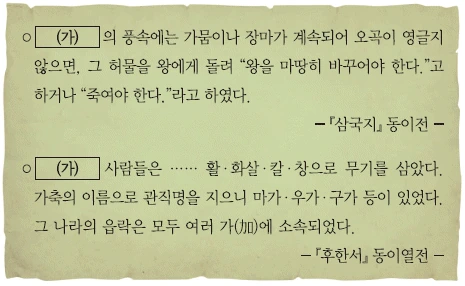 ○ (가) 의 풍속에는 가뭄이나 장마가 계속되어 오곡이 영글지
않으면, 그 허물을 왕에게 돌려 “왕을 마땅히 바꾸어야 한다.”고
하거나 “죽여야 한다.”라고 하였다.
- 『삼국지』 동이전 -
○ (가) 사람들은 …… 활·화살·칼·창으로 무기를 삼았다.
가축의 이름으로 관직명을 지으니 마가·우가·구가 등이 있었다.
그 나라의 읍락은 모두 여러 가(加)에 소속되었다.
- 『후한서』 동이열전 -